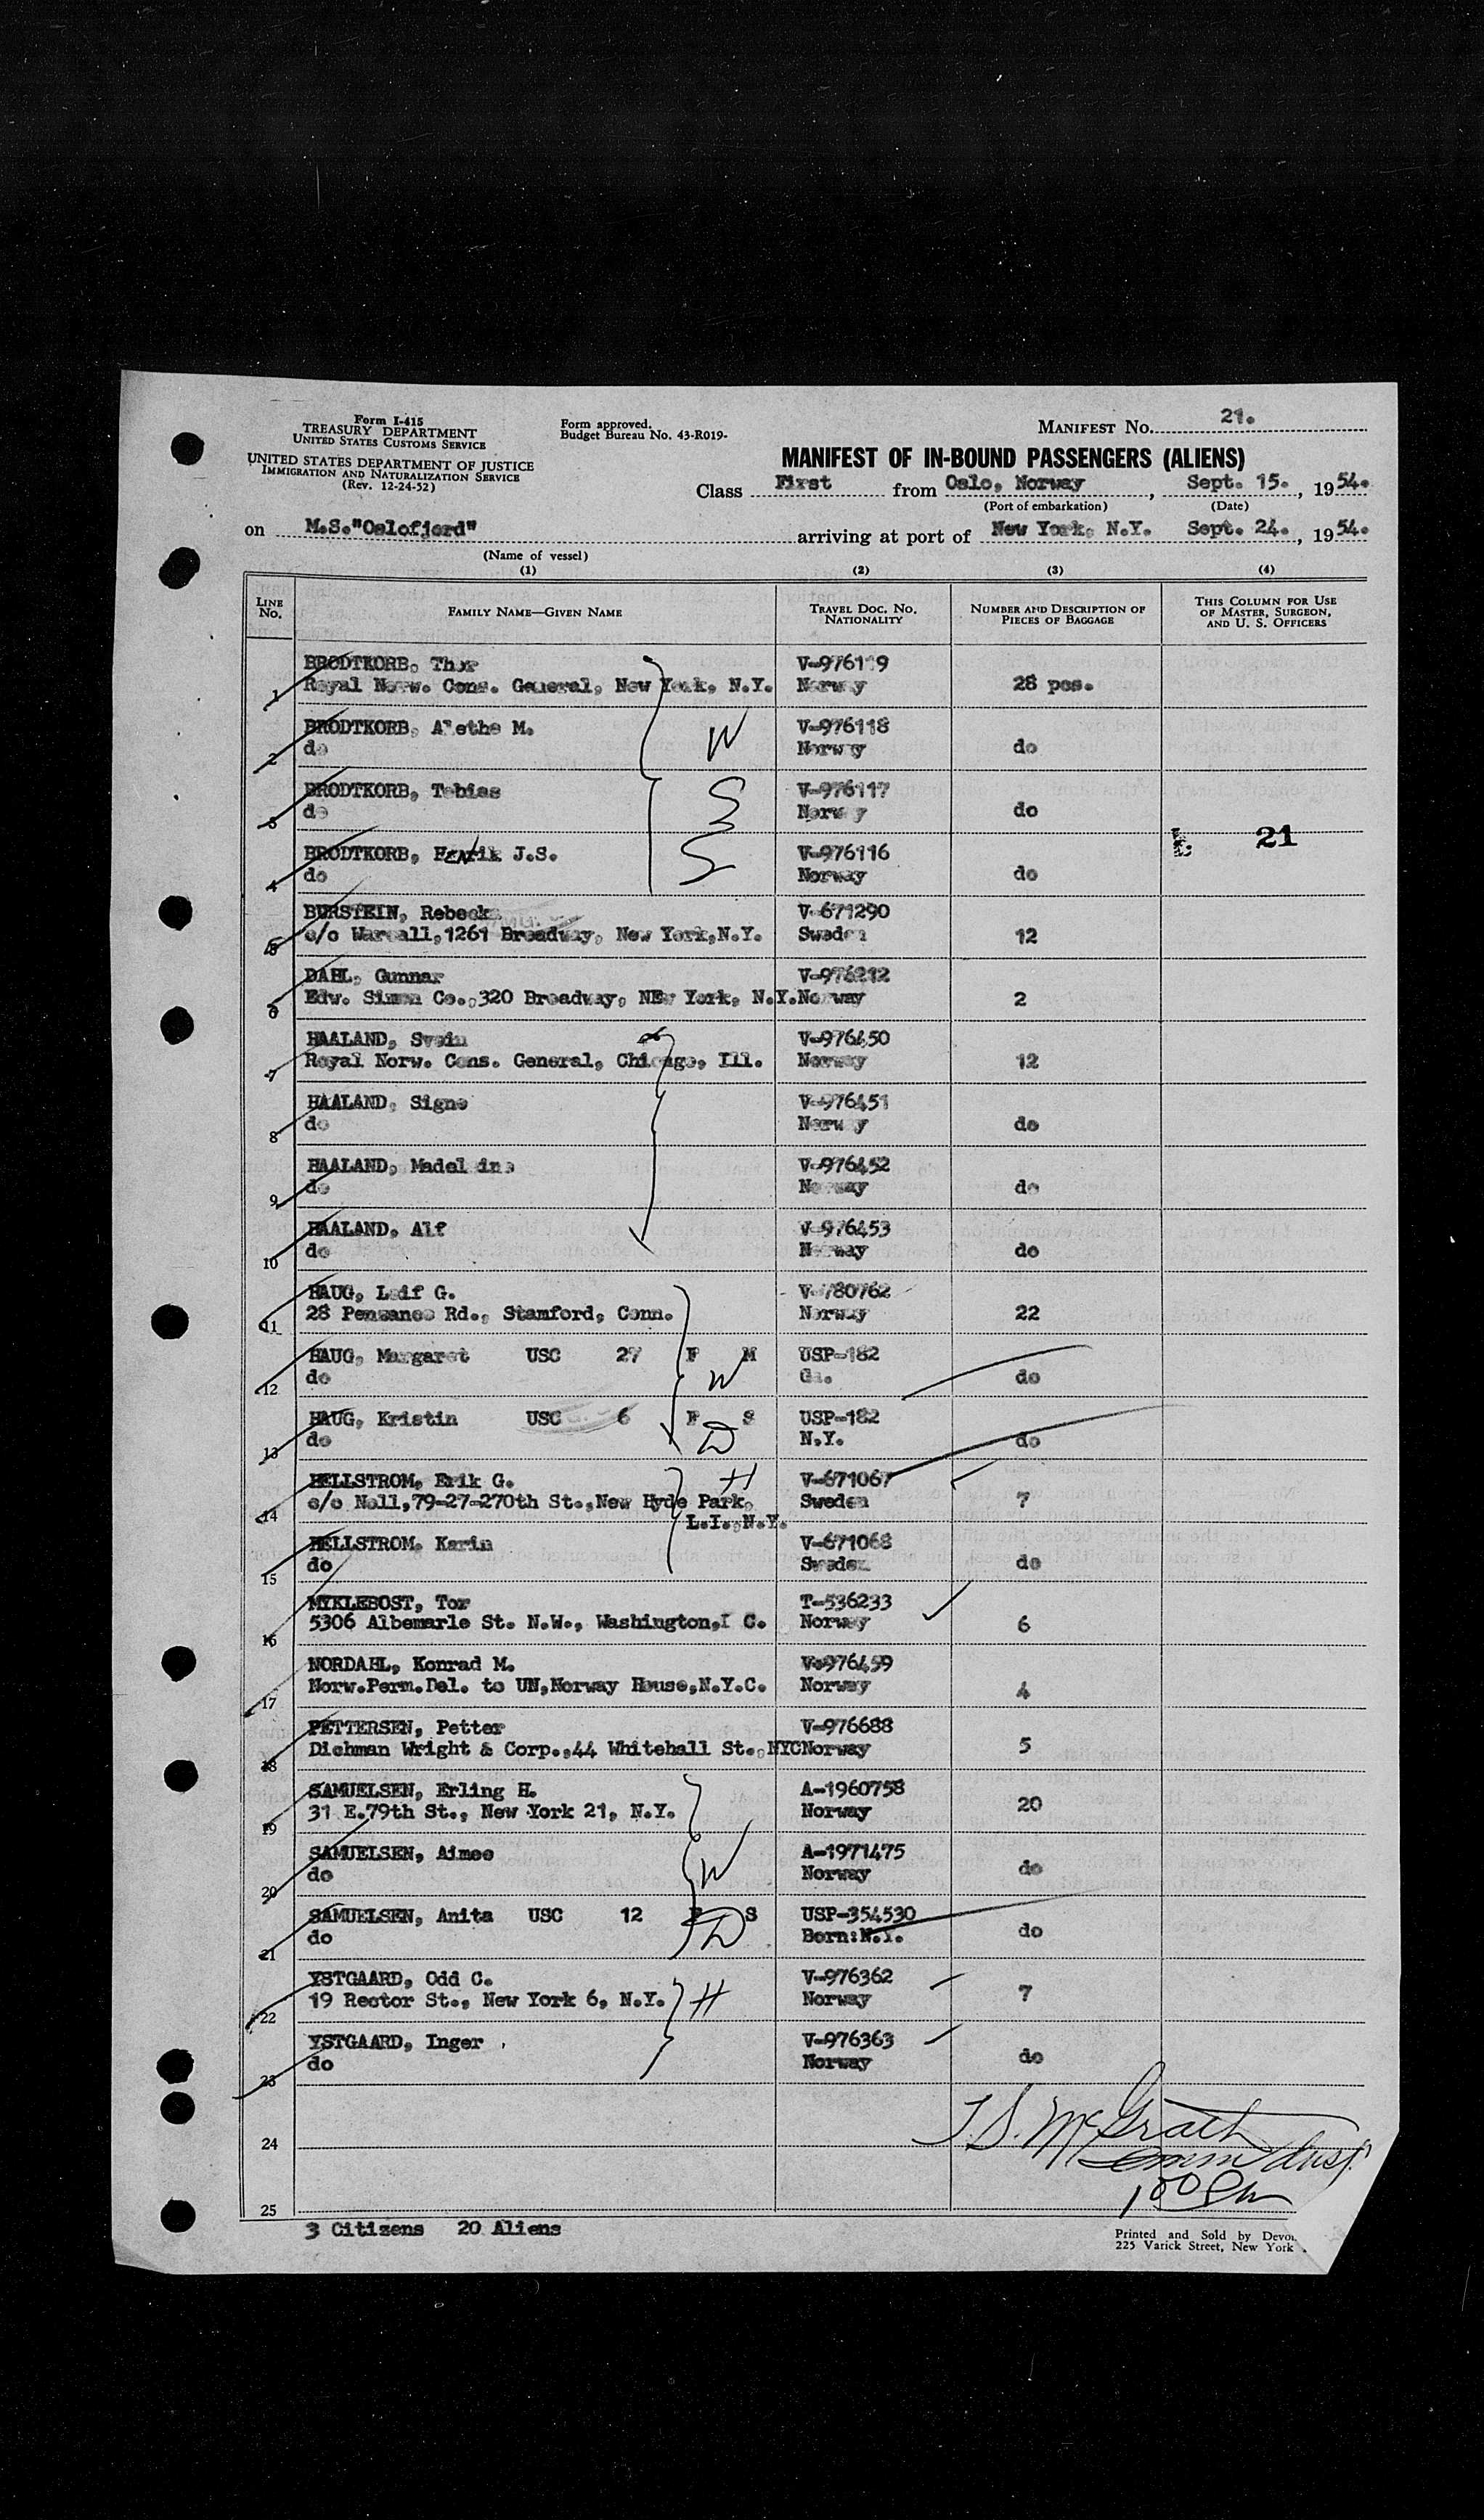 Form I-415
TREASURY DEPARTMENT
UNITED STATES CUSTOMS SERVICE
UNITED STATES DEPARTMENT OF JUSTICE
IMMIGRATION AND NATURALIZATION SERVICE
(Rev. 12-24-52)
Form approved.
Budget Bureau No. 43-R019-
MANIFEST NO. 21.
MANIFEST OF IN-BOUND PASSENGERS (ALIENS)
Class First from Oslo, Norway, Sept. 15., 1954.
(Port of embarkation) (Date)
on M.S."Oslofjord" arriving at port of New York, N.Y. Sept. 24., 1954.
(Name of vessel)
(1) (2) (3) (4)
LINE No. FAMILY NAME—GIVEN NAME TRAVEL DOC. NO. NATIONALITY NUMBER AND DESCRIPTION OF PIECES OF BAGGAGE THIS COLUMN FOR USE OF MASTER, SURGEON, AND U. S. OFFICERS
BRODTKORB, Thor V-976119
1 Royal Norw. Cons. General, New York, N.Y. Norway 28 pcs.
BRODTKORB, Alethe M. V-976118
2 do W Norway do
BRODTKORB, Tobias S V-976117
3 do Norway do
BRODTKORB, Henrik J.S. S V-976116 21
4 do Norway do
BURSTEIN, Rebecka V-671290
5 c/o Warcall,1261 Broadway, New York,N.Y. Sweden 12
DAHL, Gunnar V-976212
6 Edw. Simon Co.,320 Broadway, NEw York, N.Y. Norway 2
HAALAND, Svein V-976450
7 Royal Norw. Cons. General, Chicago, Ill. Norway 12
HAALAND, Signe V-976451
8 do Norway do
HAALAND, Madeleine V-976452
9 do Norway do
HAALAND, Alf V-976453
10 do Norway do
HAUG, Leif G. V-780762
11 28 Penzance Rd., Stamford, Conn. Norway 22
HAUG, Margaret USC 27 F M USP-182
12 do W Ga. do
HAUG, Kristin USC 6 F S USP-182
13 do D N.Y. do
HELLSTROM, Erik G. H V-671067
14 c/o Noll,79-27-270th St.,New Hyde Park, Sweden 7
L.I.,N.Y.
HELLSTROM, Karin V-671068
15 do Sweden do
MYKLEBOST, Tor T-536233
16 5306 Albemarle St. N.W., Washington, C. Norway 6
NORDAHL, Konrad M. V-976459
17 Norw.Perm.Del. to UN,Norway House,N.Y.C. Norway 4
PETTERSEN, Petter V-976688
18 Dichman Wright & Corp.,44 Whitehall St.,NYC Norway 5
SAMUELSEN, Erling H. A-1960758
19 31 E.79th St., New York 21, N.Y. Norway 20
SAMUELSEN, Aimee W A-1971475
20 do Norway do
SAMUELSEN, Anita USC 12 F S USP-354530
21 do D Born:N.Y. do
YSTGAARD, Odd C. V-976362
22 19 Rector St., New York 6, N.Y. H Norway 7
YSTGAARD, Inger V-976363
23 do Norway do
24
T S. McGrath
Imm Insp
25
3 Citizens 20 Aliens
Printed and Sold by
225 Varick Street, New York